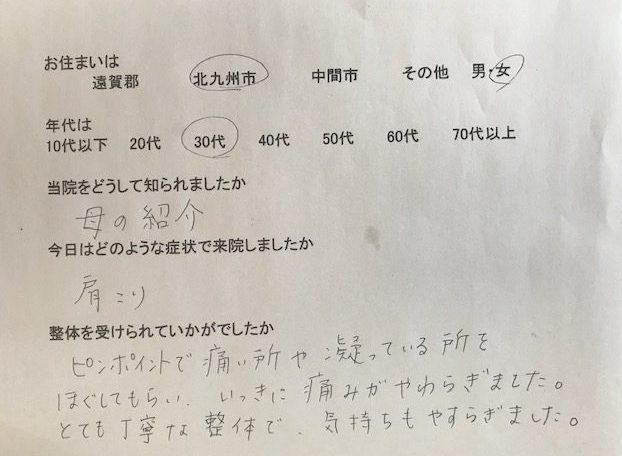 お住まいは
遠賀郡 北九州市 中間市 その他 男・女
年代は
10代以下 20代 30代 40代 50代 60代 70代以上
当院をどうして知られましたか
母の紹介
今日はどのような症状で来院しましたか
肩こり
整体を受けられていかがでしたか
ピンポイントで痛い所や凝っている所を
ほぐしてもらい、いっきに痛みがやわらぎました。
とても丁寧な整体で、気持ちもやすらぎました。